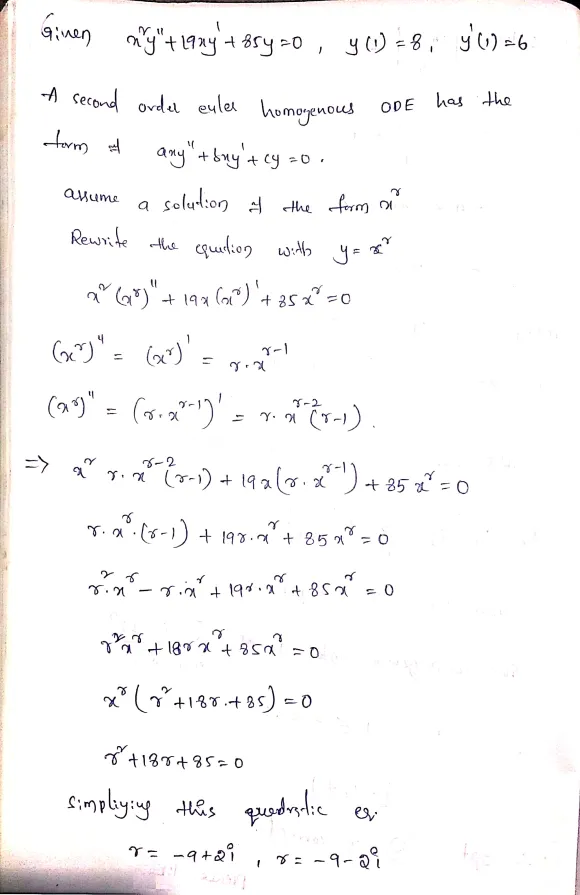 Given x²y"+19xy'+85y=0 , y(1)=8, y'(1)=6
A second order euler homogenous ODE has the
form of axy"+bxy'+cy=0.
assume a solution of the form x^r
Rewrite the equation with y=x^r
x²(x^r)"+19x(x^r)'+85x^r=0
(x^r)" = (x^r)' = r.x^r-1
(x^r)" = (r.x^r-1)' = r.x^r-2(r-1).
=> x² r.x^r-2(r-1)+19x(r.x^r-1)+85x^r=0
r.x^r.(r-1)+19r.x^r+85x^r=0
r².x^r-r.x^r+19r.x^r+85x^r=0
r²x^r+18rx^r+85x^r=0
x^r(r²+18r+85)=0
r²+18r+85=0
Simpliying this quadratic eq.
r=-9+2i , r=-9-2i